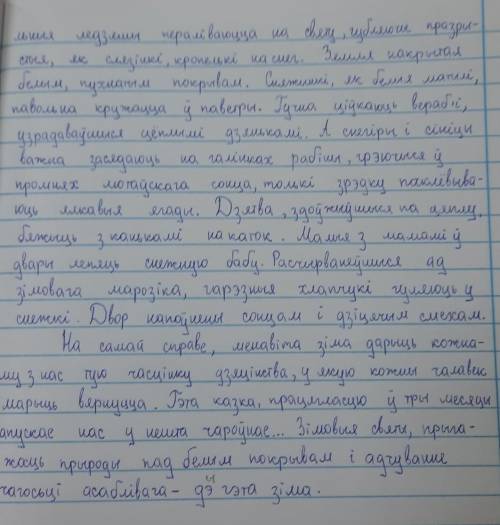 льныя ледзяшы пераліваюцца на святле, губляючы празры-
стыя, як слязінкі, кропелькі на снег. Зямля накрытая
белым, пухнатым покрывам. Сняжынкі, як белыя матылі,
павольна кружацца ў паветры. Гучна ціўкаюць вераб'і,
узрадаваўшыся цёплымі дзянькамі. А снегіры і сініцы
важна засядаюць на галінках рабіны, грэючыся ў
промнях лютаўскага сонца, толькі зрэдку паклёўва-
юць ласкавыя ягады. Дзятва, здоўжыўшыся па цяплу,
бяжыць з канькамі на каток. Малыя з мамамі ў
двары лепяць снежную бабу. Расчырванеўшыся ад
зімовага марозіка, гарэзныя хлапчукі гуляюць у
снежкі. Двор напоўнены сонцам і дзіцячым смехам.
На самай справе, менавіта зіма дорыць кожна-
му з нас тую часцінку дзяцінства, у якую кожны чалавек
марыць вярнуцца. Гэта казка, працягласцю ў тры месяцы
апускае нас у нешта чароўнае... Зімовыя святы, прыга-
жосць прыроды пад белым покрывам і адчуванне
чагосьці асаблівага – ды гэта зіма.